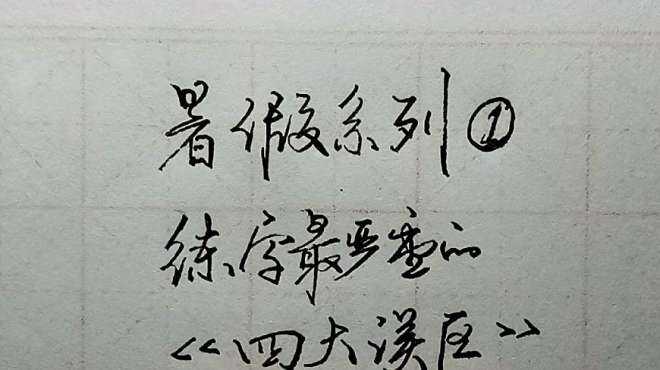 暑假系列①
练字最严重的
《四大误区》